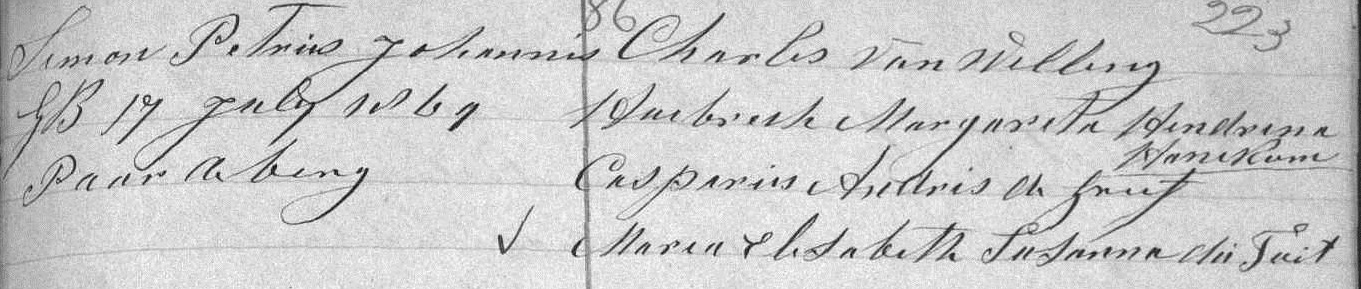 86 223
Simon Petrus Johannis Charles van Welling
GB 17 July 1869 Huibreth Margareta Hendrina
Hanekom
Paardeberg Casparus Andris de Greef
✓ Maria Elisabeth Susanna du Toit